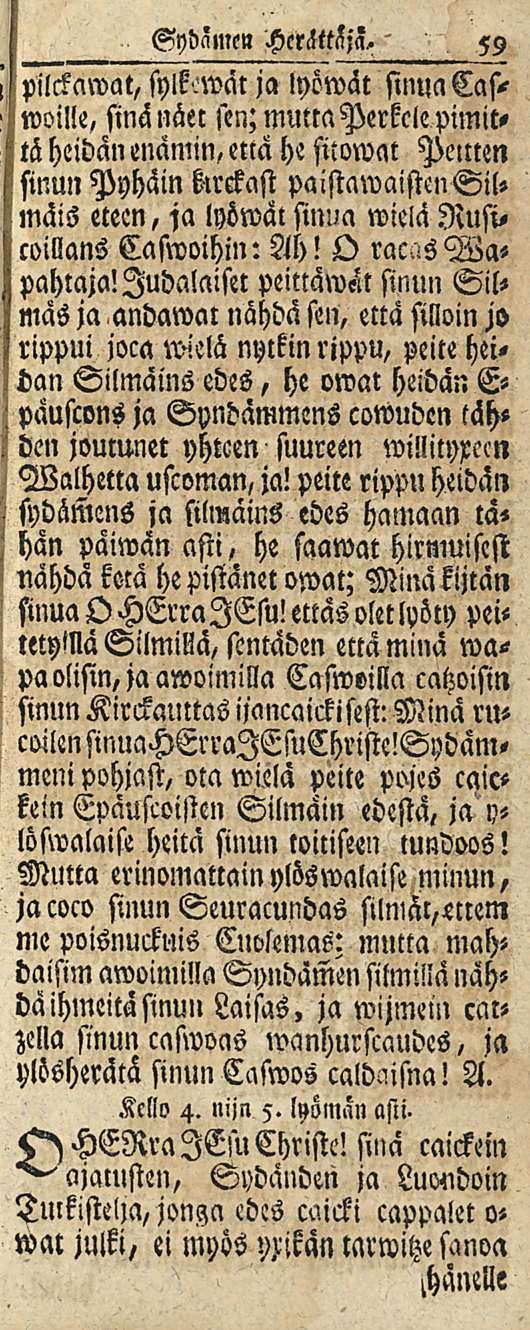 Sydämen Herättäjä. 59
pilckawat, sylkewät ja lyöwät sinua Cas-
woille, sinä näet sen; mutta Perkele pimit-
tä heidän enämin, että he sitowat Peitten
sinun Pyhäin kirckast paistawaisten Sil-
mäis eteen, ja lyöwät sinua wielä Rusi-
coillans Caswoihin: Ah! O racas Wa-
pahtaja! Judalaiset peittäwät sinun Sil-
mäs ja andawat nähdä sen, että silloin jo
rippui joca wielä nytkin rippu, peite hei-
dän Silmäins edes, he owat heidän E-
päuscons ja Syndämmens cowuden täh-
den joutunet yhteen suureen willityxeen
Walhetta uscoman, ja! peite rippu heidän
sydäm̄ens ja silmäins edes hamaan tä-
hän päiwän asti, he saawat hirmuisest
nähdä ketä he pistänet owat; Minä kijtän
sinua O HErra JEsu! ettäs olet lyöty pei-
tetyillä Silmillä, sentäden että minä wa-
pa olisin, ja awoimilla Caswoilla catzoisin
sinun Kirckauttas ijancaickisest: Minä ru-
coilen sinua HErra JEsu Christe! Sydäm-
meni pohjast, ota wielä peite pojes caic-
kein Epäuscoisten Silmäin edestä, ja y-
löswalaise heitä sinun toitiseen tundoos!
Mutta erinomattain ylöswalaise minun,
ja coco sinun Seuracundas silmät, ettem
me poisnuckuis Cuolemas; mutta mah-
daisim awoimilla Syndäm̄en silmillä näh-
dä ihmeitä sinun Laisas, ja wijmein cat-
zella sinun caswoas wanhurscaudes, ja
ylösherätä sinun Caswos caldaisna! A.
Kello 4. nijn 5. lyömän asti.
O HERra JEsu Christe! sinä caickein
ajatusten, Sydänden ja Luondoin
Tutkistelja, jonga edes caicki cappalet o-
wat julki, ei myös yxikän tarwitze sanoa
hänelle